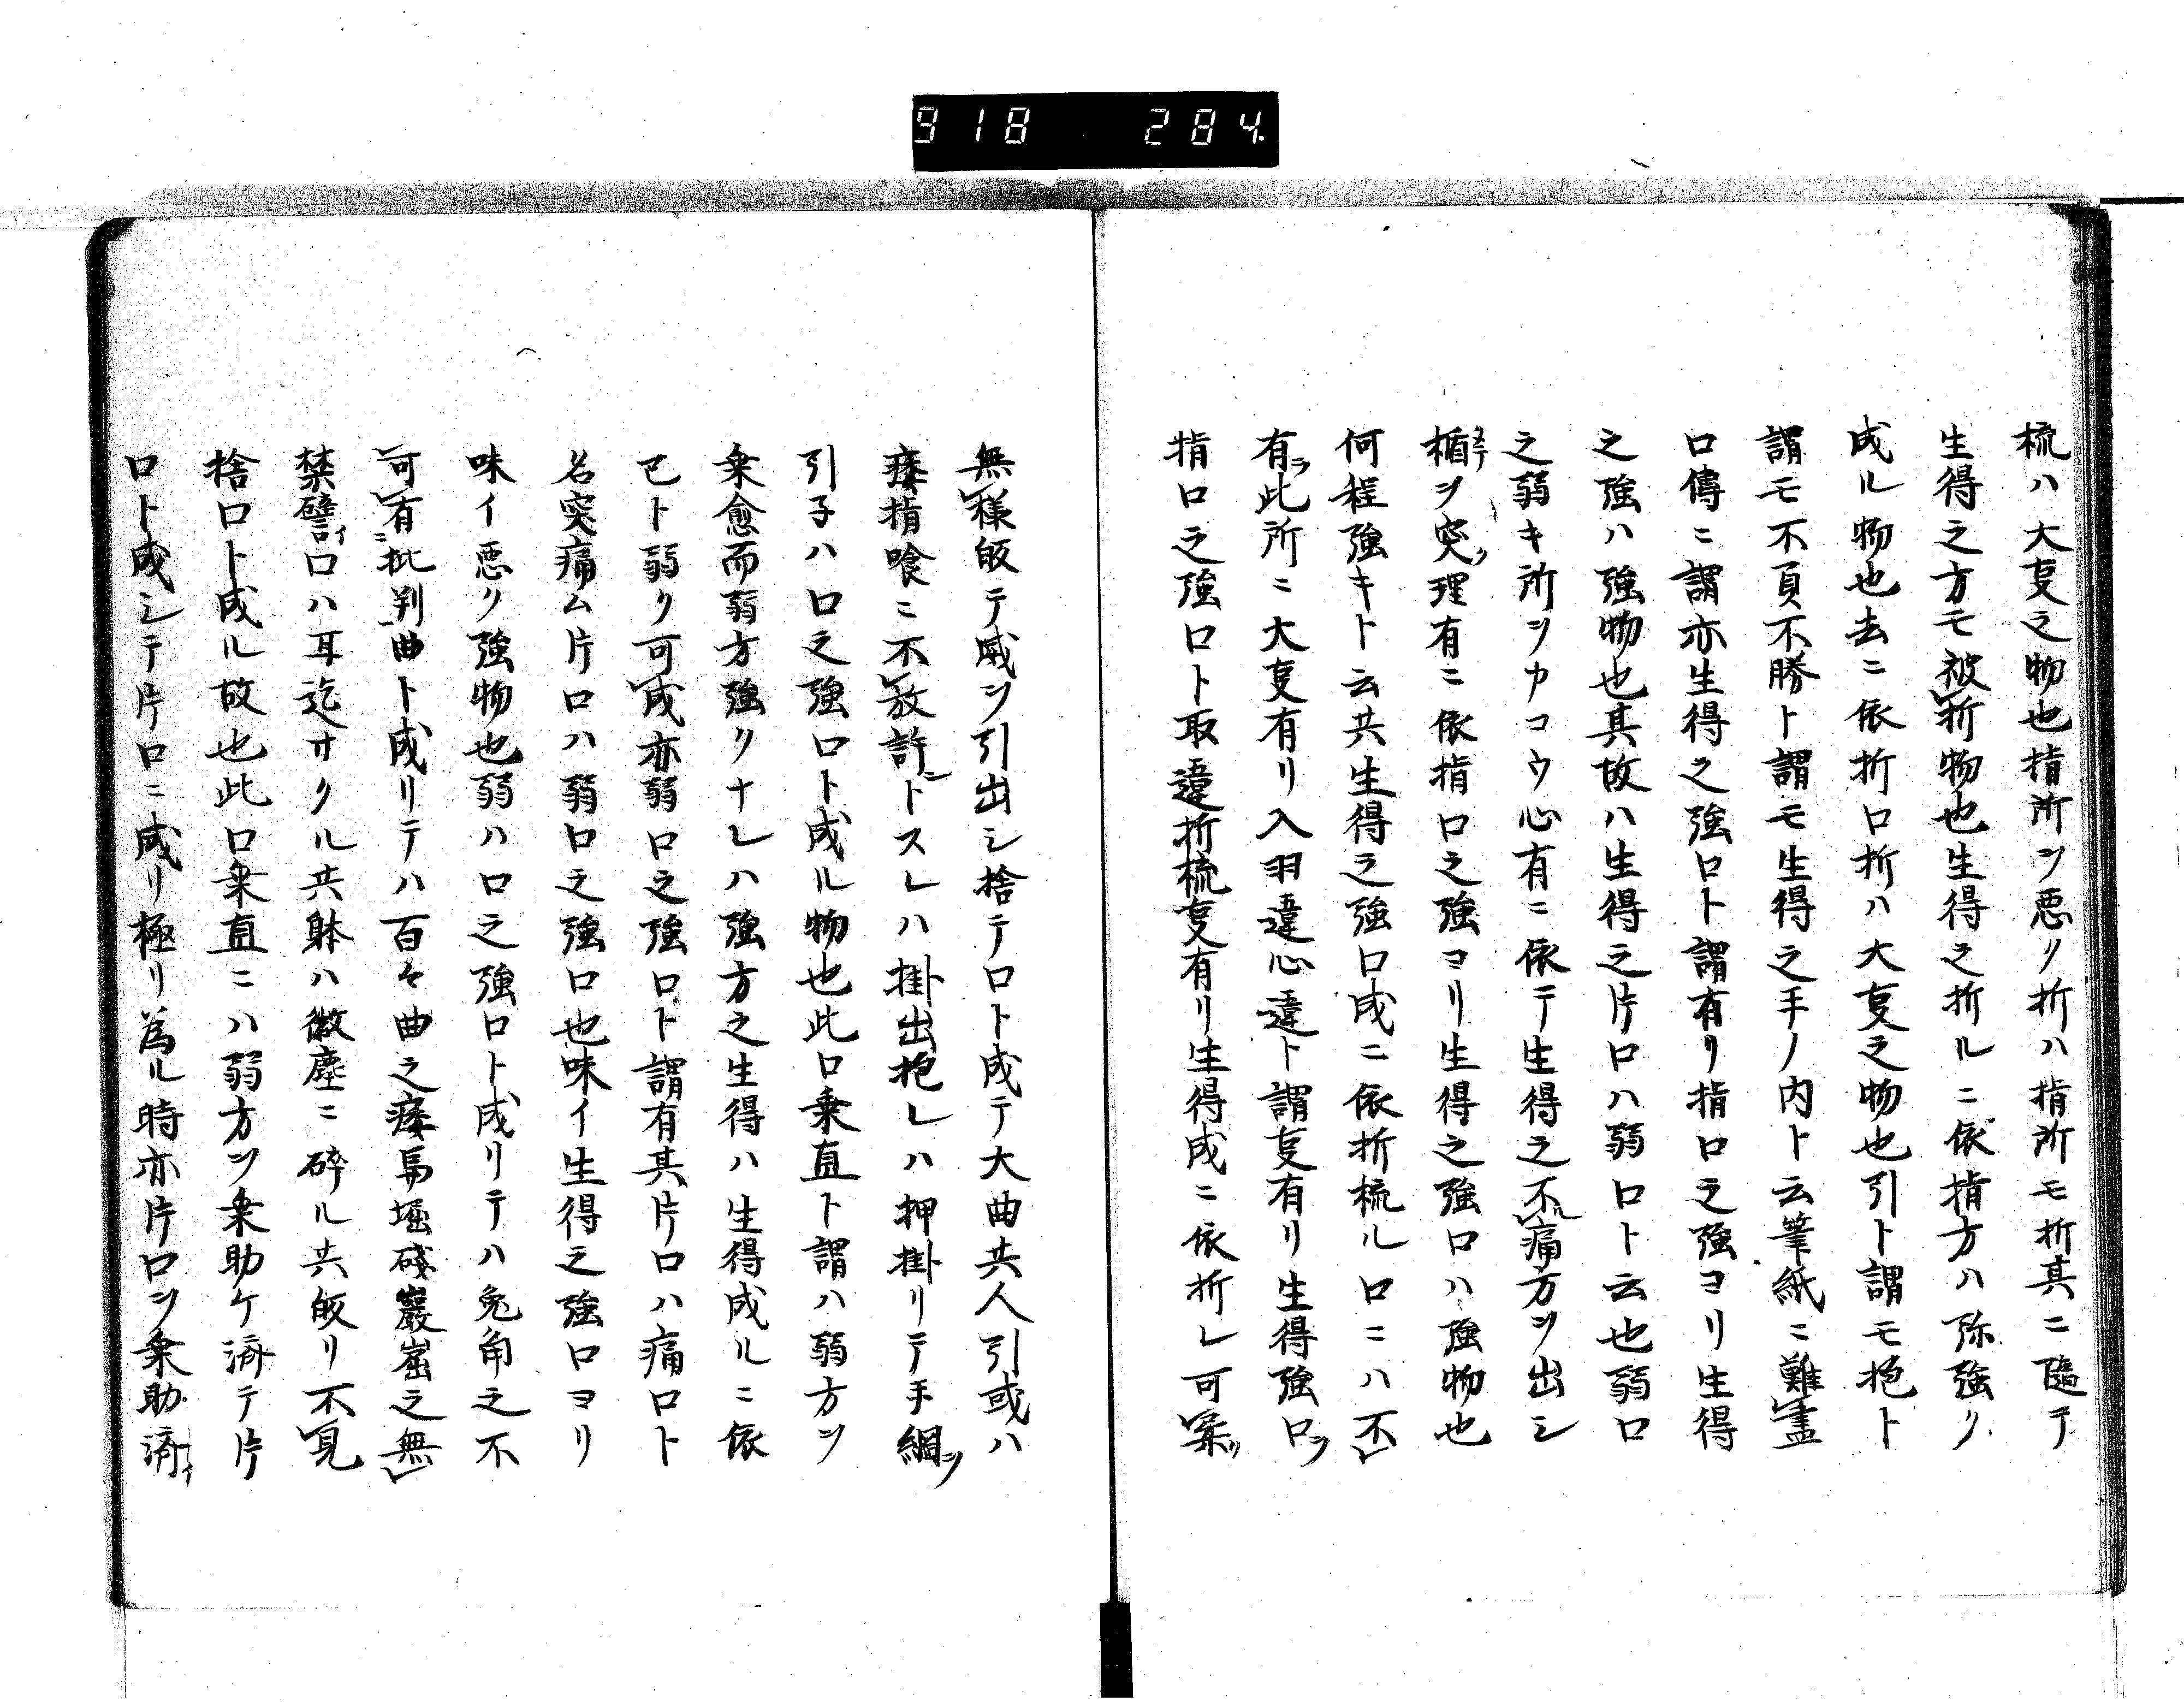 918 284
梳ハ大㕝之物也指所ヲ悪ク折ハ指所モ折其ニ隨テ
生得之方モ被折物也生得之折ルニ依指方ハ弥強ク
成ル物也去ニ依折口折ハ大㕝之物也引ト謂モ抱ト
謂モ不負不勝ト謂モ生得之手ノ内ト云筆紙ニ難盡
口傳ニ謂亦生得之強口ト謂有リ指口之強ヨリ生得
之強ハ強物也其故ハ生得之片口ハ弱口ト云也弱口
之弱キ所ヲカコウ心有ニ依テ生得之不痛方ヲ出シ
楯ヲ突理有ニ依指口之強ヨリ生得之強口ハ強物也
何程強キト云共生得之強口成ニ依折梳ル口ニハ不
有此所ニ大㕝有リ入羽違心違ト謂㕝有リ生得強口
指口之強口ト取違折梳㕝有リ生得成ニ依折レ可案
無様皈テ威ヲ引出シ捨テ口ト成テ大曲共人引或ハ
痿指喰ニ不放許トスレハ掛出抱レハ押掛リテ手綱
引子ハ口之強口ト成ル物也此口乗直ト謂ハ弱方ヲ
乗愈而弱方強クナレハ強方之生得ハ生得成ルニ依
已ト弱ク可成亦弱口之強口ト謂有其片口ハ痛口ト
名突痛ム片口ハ弱口之強口也味イ生得之強口ヨリ
味イ悪ク強物也弱ハ口之強口ト成リテハ兔角之不
可有批判曲ト成リテハ百々曲之痿馬堀磋巖崫之無
禁譬口ハ耳迄サクル共躰ハ微塵ニ碎ル共皈リ不見
捨口ト成ル故也此口乗直ニハ弱方ヲ乗助ケ済テ片
口ト成シテ片口ニ成リ極リ為ル時亦片口ヲ乗助済